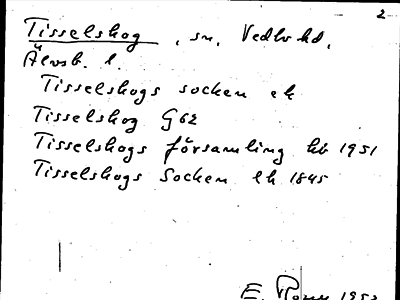 2
Tisselskog, sn, Vedbo hd,
Älvsb. l.
Tisselskogs socken ek
Tisselskog G62
Tisselskogs församling kb 1951
Tisselskogs Socken ek 1845
E. 1952